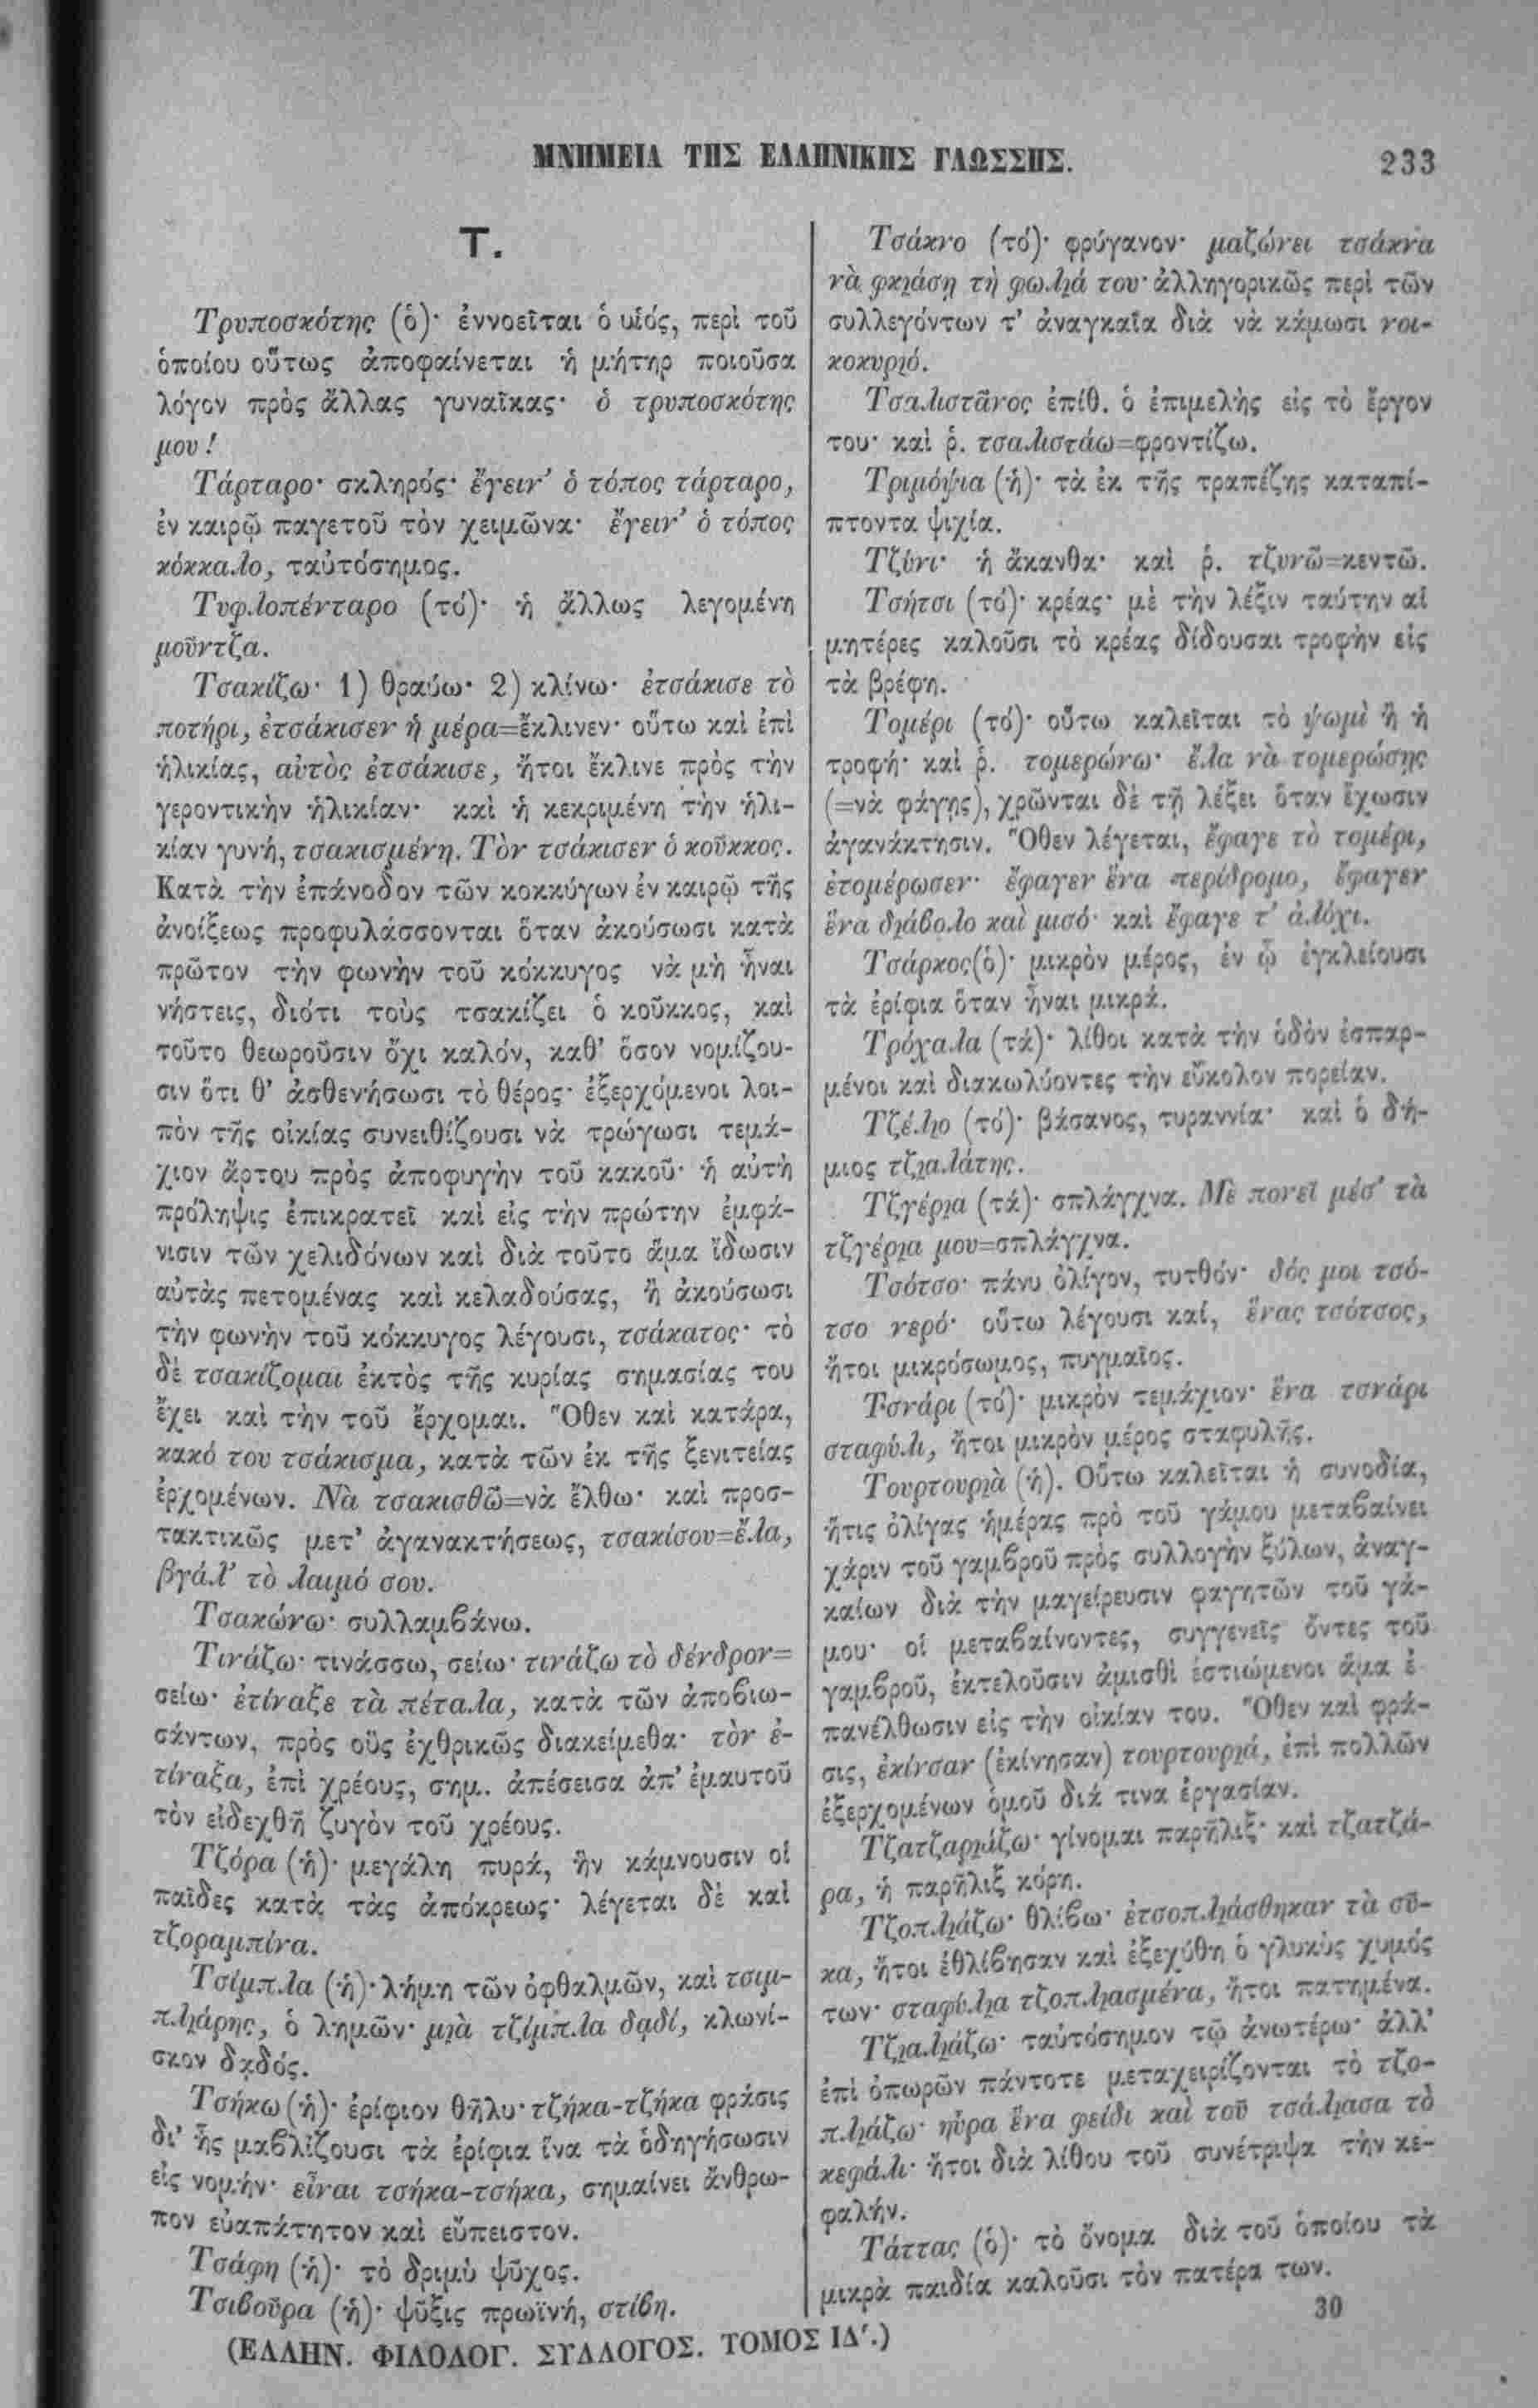 ΜΝΗΜΕΙΑ ΤΗΣ ΕΛΛΗΝΙΚΗΣ ΓΛΩΣΣΗΣ. 233
Τ.
Τρυποσκότης (ὁ)· ἐννοεῖται ὁ υἱός, περὶ τοῦ
ὁποίου οὕτως ἀποφαίνεται ἡ μήτηρ ποιοῦσα
λόγον πρὸς ἄλλας γυναῖκας· ὁ τρυποσκότης
μου!
Τάρταρο· σκληρός· ἔγειν' ὁ τόπος τάρταρο,
ἐν καιρῷ παγετοῦ τὸν χειμῶνα· ἔγειν' ὁ τόπος
κόκκαλο, ταὐτόσημος.
Τυφλοπένταρο (τό)· ἡ ἄλλως λεγομένη
μοῦντζα.
Τσακίζω· 1) θραύω· 2) κλίνω· ἐτσάκισε τὸ
ποτήρι, ἐτσάκισεν ἡ μέρα=ἔκλινεν· οὕτω καὶ ἐπὶ
ἡλικίας, αὐτὸς ἐτσάκισε, ἤτοι ἔκλινε πρὸς τὴν
γεροντικὴν ἡλικίαν· καὶ ἡ κεκριμένη τὴν ἡλι-
κίαν γυνή, τσακισμένη. Τὸν τσάκισεν ὁ κοῦκκος.
Κατὰ τὴν ἐπάνοδον τῶν κοκκύγων ἐν καιρῷ τῆς
ἀνοίξεως προφυλάσσονται ὅταν ἀκούσωσι κατὰ
πρῶτον τὴν φωνὴν τοῦ κόκκυγος νὰ μὴ ἦναι
νήστεις, διότι τοὺς τσακίζει ὁ κοῦκκος, καὶ
τοῦτο θεωροῦσιν ὄχι καλόν, καθ' ὅσον νομίζου-
σιν ὅτι θ' ἀσθενήσωσι τὸ θέρος· ἐξερχόμενοι λοι-
πὸν τῆς οἰκίας συνειθίζουσι νὰ τρώγωσι τεμά-
χιον ἄρτου πρὸς ἀποφυγὴν τοῦ κακοῦ· ἡ αὐτὴ
πρόληψις ἐπικρατεῖ καὶ εἰς τὴν πρώτην ἐμφά-
νισιν τῶν χελιδόνων καὶ διὰ τοῦτο ἅμα ἴδωσιν
αὐτὰς πετομένας καὶ κελαδούσας, ἢ ἀκούσωσι
τὴν φωνὴν τοῦ κόκκυγος λέγουσι, τσάκατος· τὸ
δὲ τσακίζομαι ἐκτὸς τῆς κυρίας σημασίας του
ἔχει καὶ τὴν τοῦ ἔρχομαι. Ὅθεν καὶ κατάρα,
κακό του τσάκισμα, κατὰ τῶν ἐκ τῆς ξενιτείας
ἐρχομένων. Νὰ τσακισθῶ=νὰ ἔλθω· καὶ προσ-
τακτικῶς μετ' ἀγανακτήσεως, τσακίσου=ἔλα,
βγάλ' τὸ λαιμό σου.
Τσακώνω· συλλαμβάνω.
Τινάζω· τινάσσω, σείω· τινάζω τὸ δένδρον=
σείω· ἐτίναξε τὰ πέταλα, κατὰ τῶν ἀποβιω-
σάντων, πρὸς οὓς ἐχθρικῶς διακείμεθα· τὸν ἐ-
τίναξα, ἐπὶ χρέους, σημ. ἀπέσεισα ἀπ' ἐμαυτοῦ
τὸν εἰδεχθῆ ζυγὸν τοῦ χρέους.
Τζόρα (ἡ)· μεγάλη πυρά, ἣν κάμνουσιν οἱ
παῖδες κατὰ τὰς ἀπόκρεως· λέγεται δὲ καὶ
τζοραμπίνα.
Τσίμπλα (ἡ)· λήμη τῶν ὀφθαλμῶν, καὶ τσιμ-
πλιάρης, ὁ λημῶν· μιὰ τζίμπλα δᾳδί, κλωνί-
σκον δᾳδός.
Τσήκω (ἡ)· ἐρίφιον θῆλυ· τζήκα-τζήκα φράσις
δι' ἧς μαβλίζουσι τὰ ἐρίφια ἵνα τὰ ὁδηγήσωσιν
εἰς νομήν· εἶναι τσήκα-τσήκα, σημαίνει ἄνθρω-
πον εὐαπάτητον καὶ εὔπειστον.
Τσάφη (ἡ)· τὸ δριμὺ ψῦχος.
Τσιβοῦρα (ἡ)· ψῦξις πρωϊνή, στίβη.
Τσάκνο (τό)· φρύγανον· μαζώνει τσάκνα
νὰ φκιάσῃ τὴ φωλιά του· ἀλληγορικῶς περὶ τῶν
συλλεγόντων τ' ἀναγκαῖα διὰ νὰ κάμωσι νοι-
κοκυριό.
Τσαλιστᾶνος ἐπίθ. ὁ ἐπιμελὴς εἰς τὸ ἔργον
του· καὶ ῥ. τσαλιστάω=φροντίζω.
Τριμόψια (ἡ)· τὰ ἐκ τῆς τραπέζης καταπί-
πτοντα ψιχία.
Τζύνι· ἡ ἄκανθα· καὶ ῥ. τζυνῶ=κεντῶ.
Τσήτσι (τό)· κρέας· μὲ τὴν λέξιν ταύτην αἱ
μητέρες καλοῦσι τὸ κρέας δίδουσαι τροφὴν εἰς
τὰ βρέφη.
Τομέρι (τό)· οὕτω καλεῖται τὸ ψωμὶ ἢ ἡ
τροφή· καὶ ῥ. τομερώνω· ἔλα νὰ τομερώσῃς
(=νὰ φάγῃς), χρῶνται δὲ τῇ λέξει ὅταν ἔχωσιν
ἀγανάκτησιν. Ὅθεν λέγεται, ἔφαγε τὸ τομέρι,
ἐτομέρωσεν· ἔφαγεν ἕνα περίδρομο, ἔφαγεν
ἕνα διάβολο καὶ μισό· καὶ ἔφαγε τ' ἀλόχι.
Τσάρκος(ὁ)· μικρὸν μέρος, ἐν ᾧ ἐγκλείουσι
τὰ ἐρίφια ὅταν ἦναι μικρά.
Τρόχαλα (τά)· λίθοι κατὰ τὴν ὁδὸν ἐσπαρ-
μένοι καὶ διακωλύοντες τὴν εὔκολον πορείαν.
Τζέλιο (τό)· βάσανος, τυραννία· καὶ ὁ δή-
μιος τζιαλάτης.
Τζγέρια (τά)· σπλάγχνα. Μὲ πονεῖ μέσ' τὰ
τζγέρια μου=σπλάγχνα.
Τσότσο· πάνυ ὀλίγον, τυτθόν· δός μοι τσό-
τσο νερό· οὕτω λέγουσι καί, ἕνας τσότσος,
ἤτοι μικρόσωμος, πυγμαῖος.
Τσνάρι (τό)· μικρὸν τεμάχιον· ἕνα τσνάρι
σταφύλι, ἤτοι μικρὸν μέρος σταφυλῆς.
Τουρτουριὰ (ἡ). Οὕτω καλεῖται ἡ συνοδία,
ἥτις ὀλίγας ἡμέρας πρὸ τοῦ γάμου μεταβαίνει
χάριν τοῦ γαμβροῦ πρὸς συλλογὴν ξύλων, ἀναγ-
καίων διὰ τὴν μαγείρευσιν φαγητῶν τοῦ γά-
μου· οἱ μεταβαίνοντες, συγγενεῖς ὄντες τοῦ
γαμβροῦ, ἐκτελοῦσιν ἀμισθὶ ἑστιώμενοι ἅμα ἐ
πανέλθωσιν εἰς τὴν οἰκίαν του. Ὅθεν καὶ φρά-
σις, ἐκίνσαν (ἐκίνησαν) τουρτουριά, ἐπὶ πολλῶν
ἐξερχομένων ὁμοῦ διά τινα ἐργασίαν.
Τζατζαριάζω· γίνομαι παρῆλιξ· καὶ τζατζά-
ρα, ἡ παρῆλιξ κόρη.
Τζοπλιάζω· θλίβω· ἐτσοπλιάσθηκαν τὰ σῦ-
κα, ἤτοι ἐθλίβησαν καὶ ἐξεχύθη ὁ γλυκὺς χυμός
των· σταφύλια τζοπλιασμένα, ἤτοι πατημένα.
Τζιαλιάζω· ταὐτόσημον τῷ ἀνωτέρω· ἀλλ'
ἐπὶ ὀπωρῶν πάντοτε μεταχειρίζονται τὸ τζο-
πλιάζω· ηὗρα ἕνα φείδι καὶ τοῦ τσάλιασα τὸ
κεφάλι· ἤτοι διὰ λίθου τοῦ συνέτριψα τὴν κε-
φαλήν.
Τάττας (ὁ)· τὸ ὄνομα διὰ τοῦ ὁποίου τὰ
μικρὰ παιδία καλοῦσι τὸν πατέρα των.
(ΕΛΛΗΝ. ΦΙΛΟΛΟΓ. ΣΥΛΛΟΓΟΣ. ΤΟΜΟΣ ΙΔ'.) 30